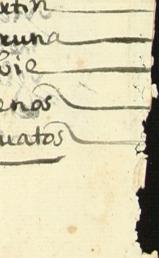 artin
runa
bie
enos
uatos